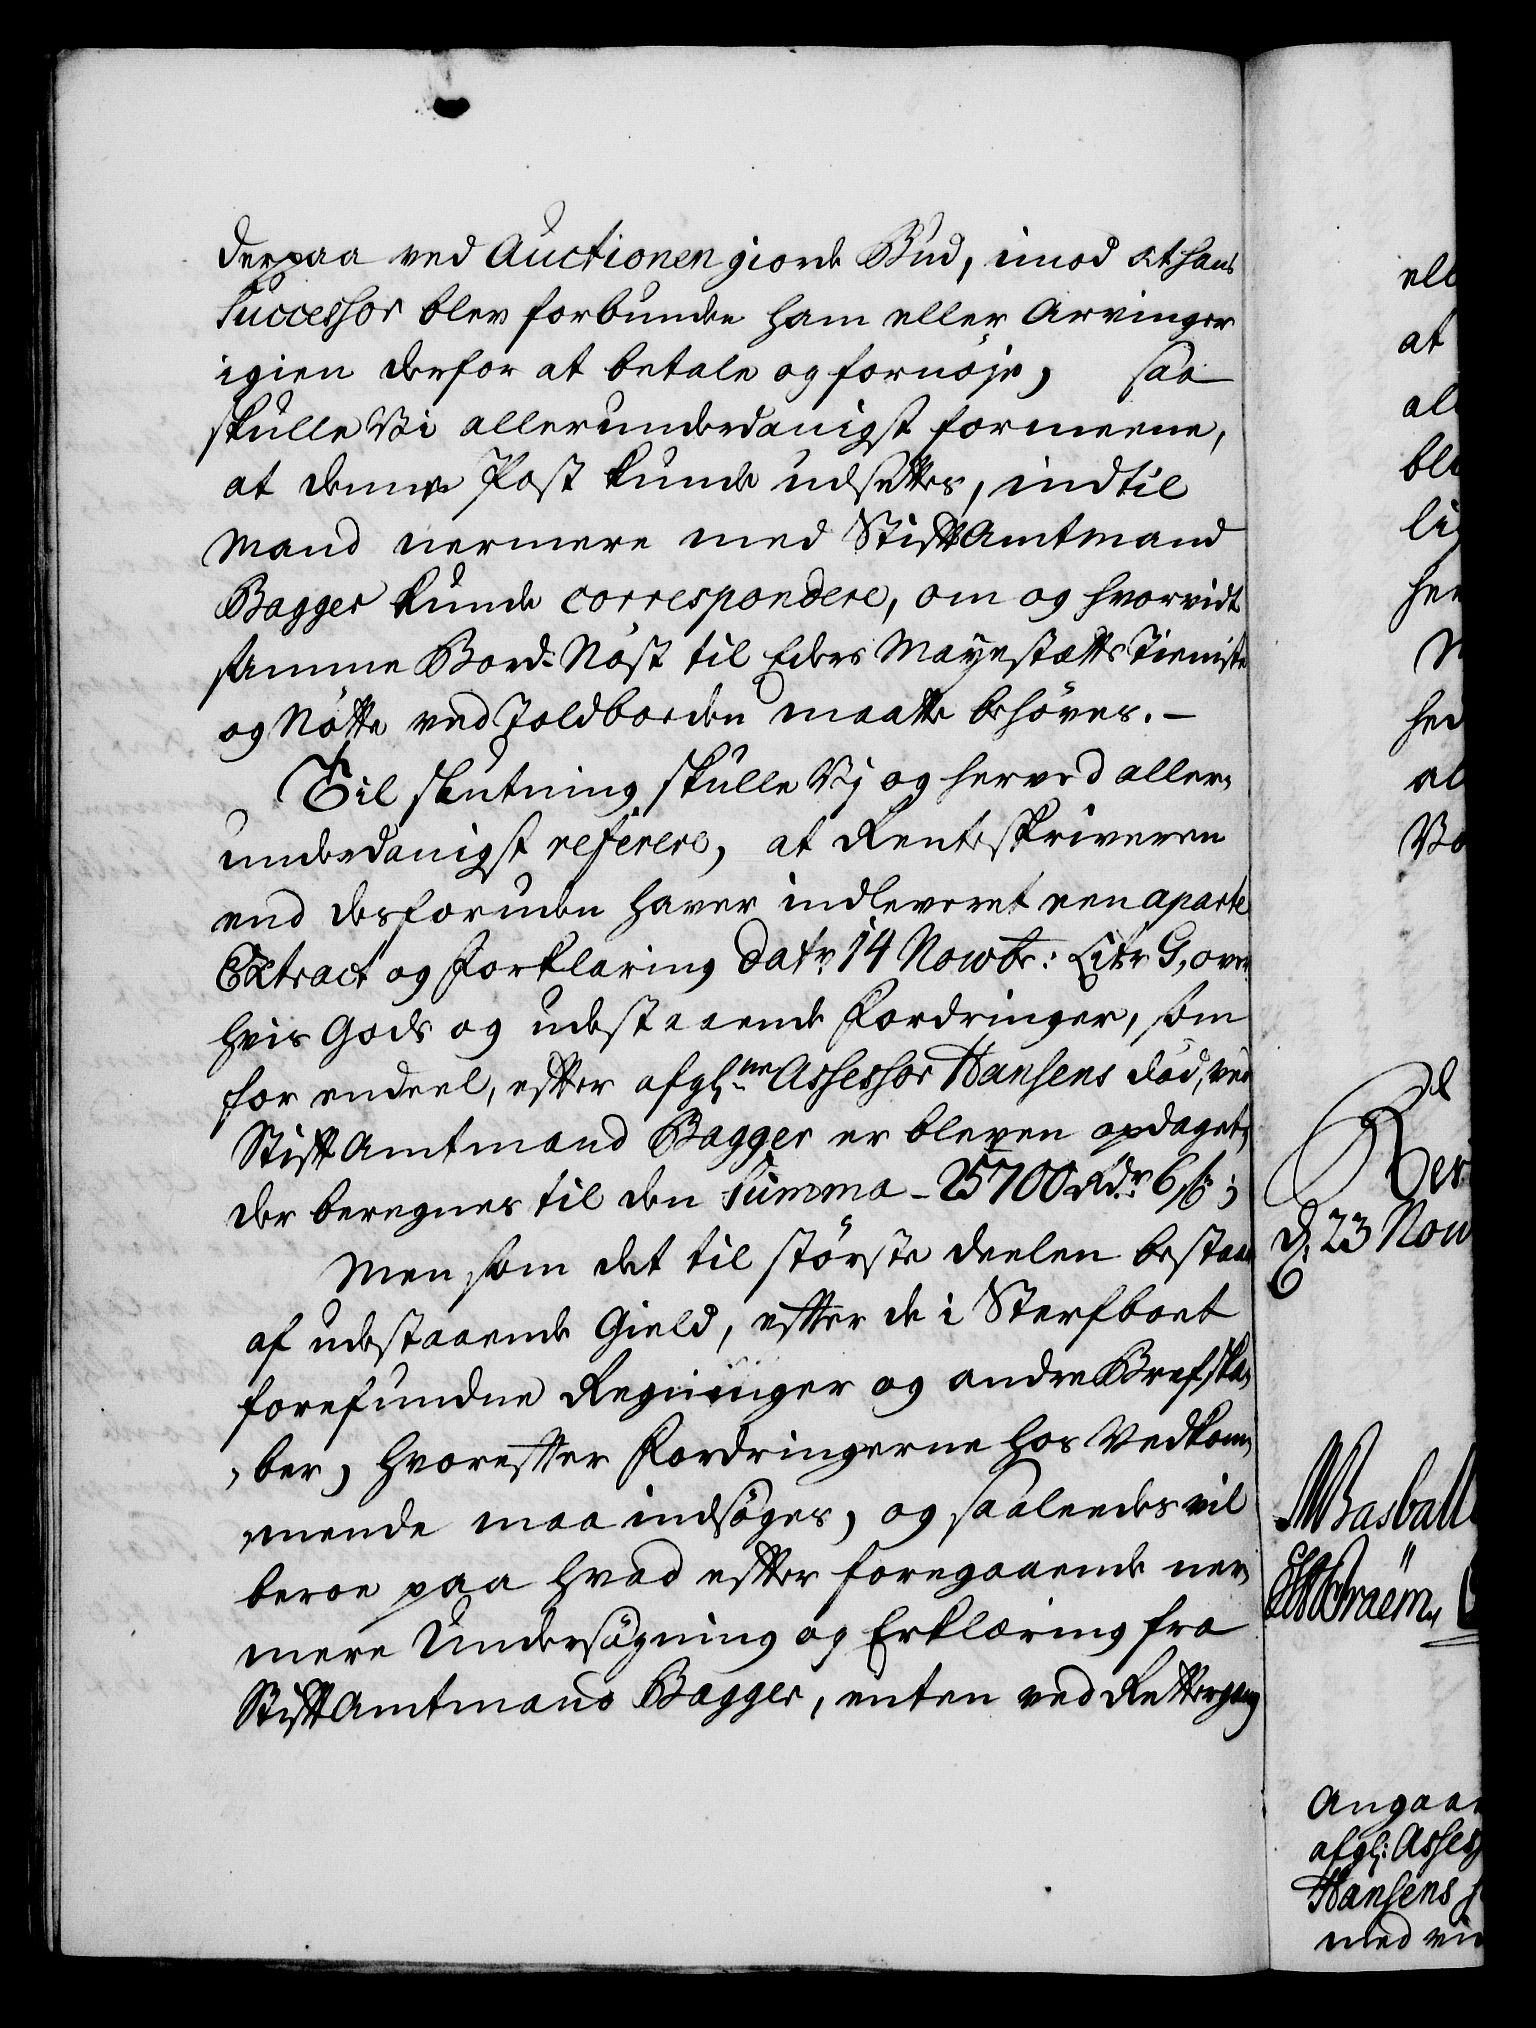 derpaa ved Auctionen giorde Bud, imod at hans
Successor blev forbunden ham eller Arvinger
igien derfor at betale og fornöje, saa
skulle Vi allerunderdanigst formeene,
at denne Post kunde udsættes, indtil
Mand nermere med StiftAmtmand
Bagger kunde correspondere, om og hvorvidt
samme Bord-Nöst til Eders Mayestætts Tieniste
og Nötte ved Toldboeden maatte behöves. —
Til slutning skulle Vj og herved aller-
underdanigst referere, at Renteskriveren
end desforuden haver indleveret een aparte
Extract og Forklaring Datr: 14 Novbr: Litr G, over
hvis Gods og udestaaende Fordringer, som
for endeel, efter afgl:ne Assessor Hansens död, ved
StiftAmtmand Bagger er bleven opdaget,
der beregnes til den Summa - 25700 Rdr 6 s:;
Men som det til störste deelen bestaar
af udestaaende Gield, efter de i Sterfboet
forefundne Regninger og andre Brefska-
ber, hvorefter Fordringerne hos Vedkom-
mende maa indsöges, og saaleedes vil
beroe paa hvad efter foregaaende ner-
mere Undersögning og Erklæring fra
StiftAmtmand Bagger, enten ved Rettergang
ell
at
al
bl
li
her
hed
al
Ve
d: 23 Nov
Angaae
afgl: Assess
Hansens
med vi